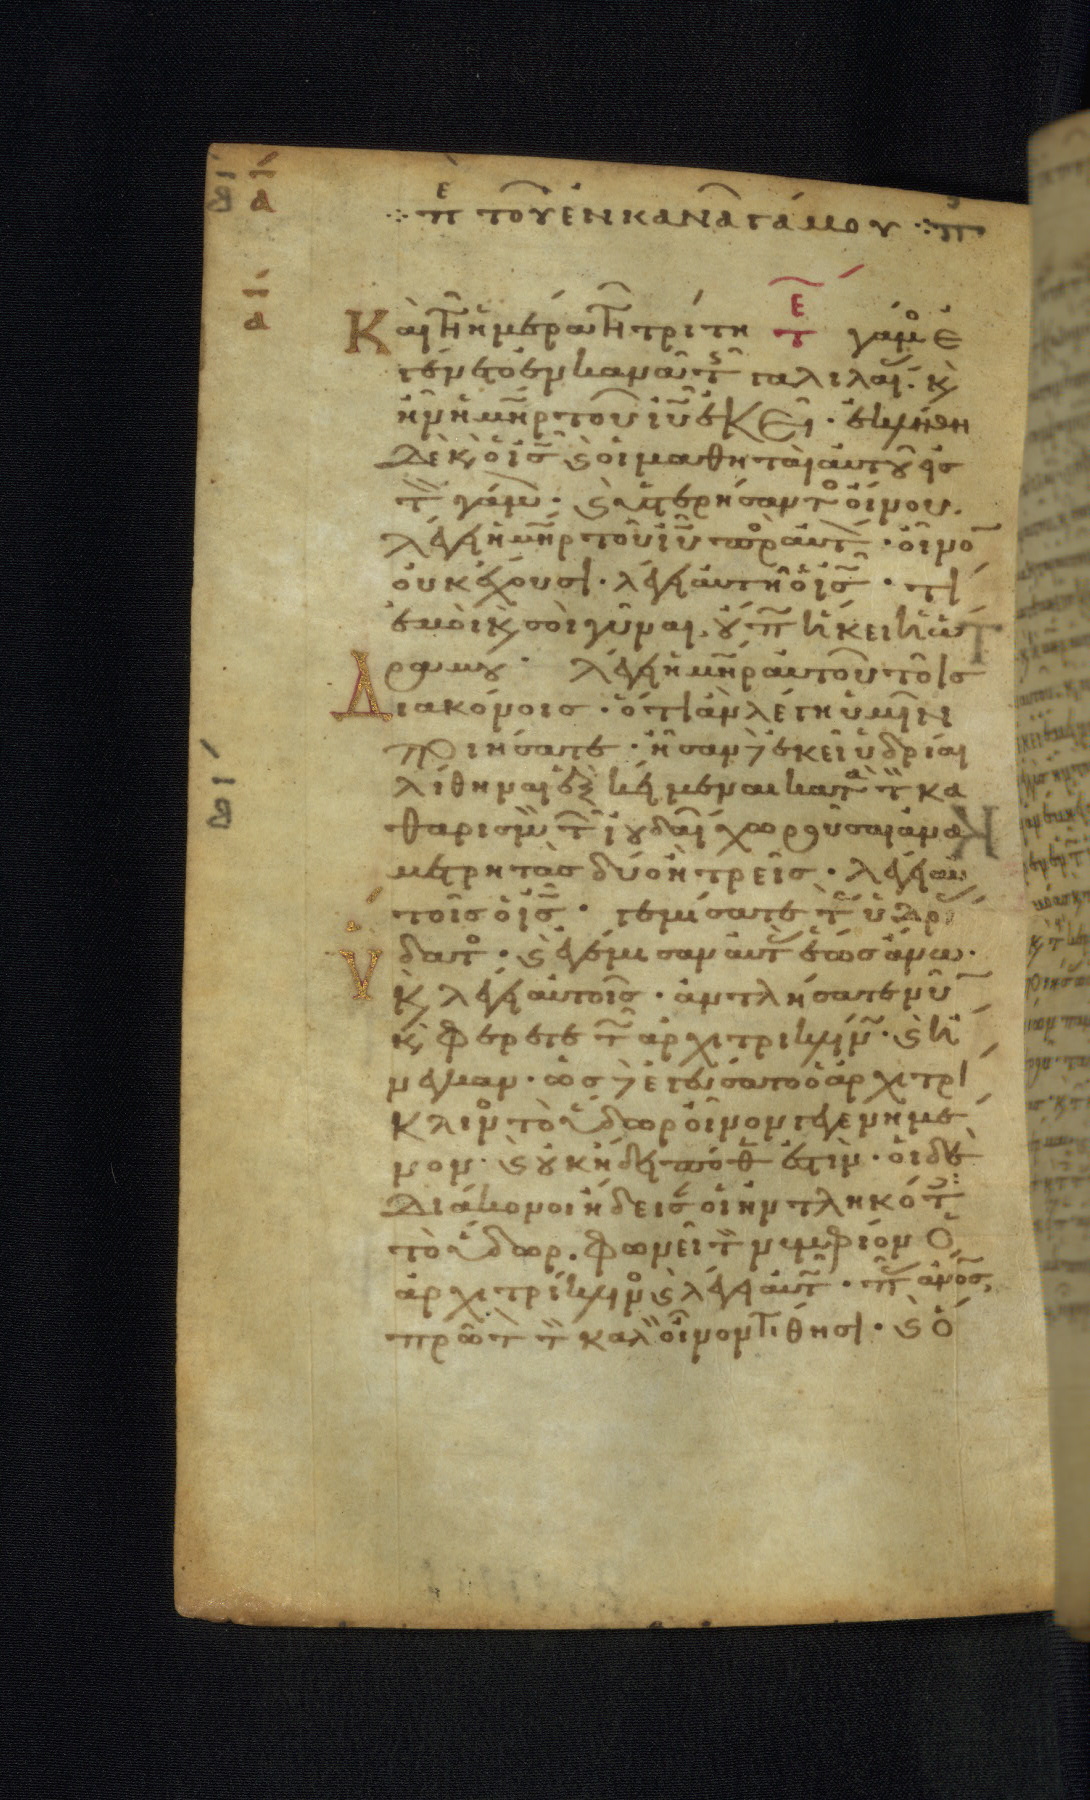 π̅ε τοῦ ἐν κανᾶ γάμου
Καὶ τῆ ἡμέρα τῆ τρίτη γάμ° ἐ
γένετο ἐν κανᾶ τῆς γαλιλαί. κ̀
ἦν ἡ μη̅ρ τοῦ ιυ̅ ἐκεῖ· ἐκλήθη
δὲ κ̀ ὁ ισ̅ κ̀ οἱ μαθηταὶ αὐτοῦ εἰς
τὸν γάμον· κ̀ ὑστερήσαντ° οἴνου.
λέγει ἡ μη̅ρ τοῦ ιυ̅ πρὸς αὐτόν· οἶνο
οὐκ ἔχουσι· λέγει αὐτῆ ὁ ισ̅· τί
ἐμοὶ κ̀ σοὶ γῦναι. οὔπω ἥκει ἡ ὥ
ρα μου· λέγει ἡ μη̅ρ αὐτοῦ τοῖς
Διακόνοις· ὅτι ἂν λέγη ὑμῖν
ποιήσατε· ἦσαν δὲ ἐκεῖ ὑδρίαι
λίθηναι ἓξ κείμεναι κατὰ τὸν κα
θαρισμὸν τῶν ἰουδαί χωροῦσαι ἀνα
μετρητὰς δύο ἢ τρεῖς· λέγει αὐ
τοῖς ὁ ισ̅· γεμίσατε τὰς ὑδρί
Ὑδατ°· κ̀ ἐγέμισαν αὐτὰς ἕως ἄνω·
κ̀ λέγει αὐτοῖς· ἀντλήσατε νῦ
κ̀ φέρετε τῶ ἀρχιτρικλίν· κ̀ ἤ
νεγκαν· ὡς δὲ ἐγεύσατο ὁ ἀρχιτρί
κλιν° τὸ ὕδωρ οἶνον γεγενημέ
νον· κ̀ οὐκ ἤδει πόθ ἐστὶν· οἱ δὲ
διάκονοι ἤδεισ οἱ ἠντληκότ
τὸ ὕδωρ. φωνεῖ τὸν νυμφίον ὁ
ἀρχιτρίκλιν° κ̀ λέγει αὐτῶ· πᾶς ἄνο̅ς
πρῶτ τὸν καλὸν οἶνον τίθησι· κ̀ ὅ